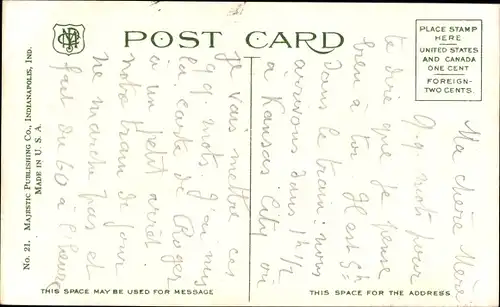 POST CARD
PLACE STAMP
HERE
UNITED STATES
AND CANADA
ONE CENT
FOREIGN-
TWO CENTS.
No. 21. MAJESTIC PUBLISHING CO., INDIANAPOLIS, IND.
MADE IN U. S. A.
Ma chère Mère
q.q mots pour
te dire que je pense
bien à toi. Il est 5h
dans le train. nous
arrivons dans 1h 1/2
à Kansas City où
je vais mettre ces
q.q mots. J'ai mis
la carte de Roger
à un petit arrêt
notre train de jour
ne marche pas et
fait du 60 à l'heure
THIS SPACE MAY BE USED FOR MESSAGE
THIS SPACE IS FOR THE ADDRESS.